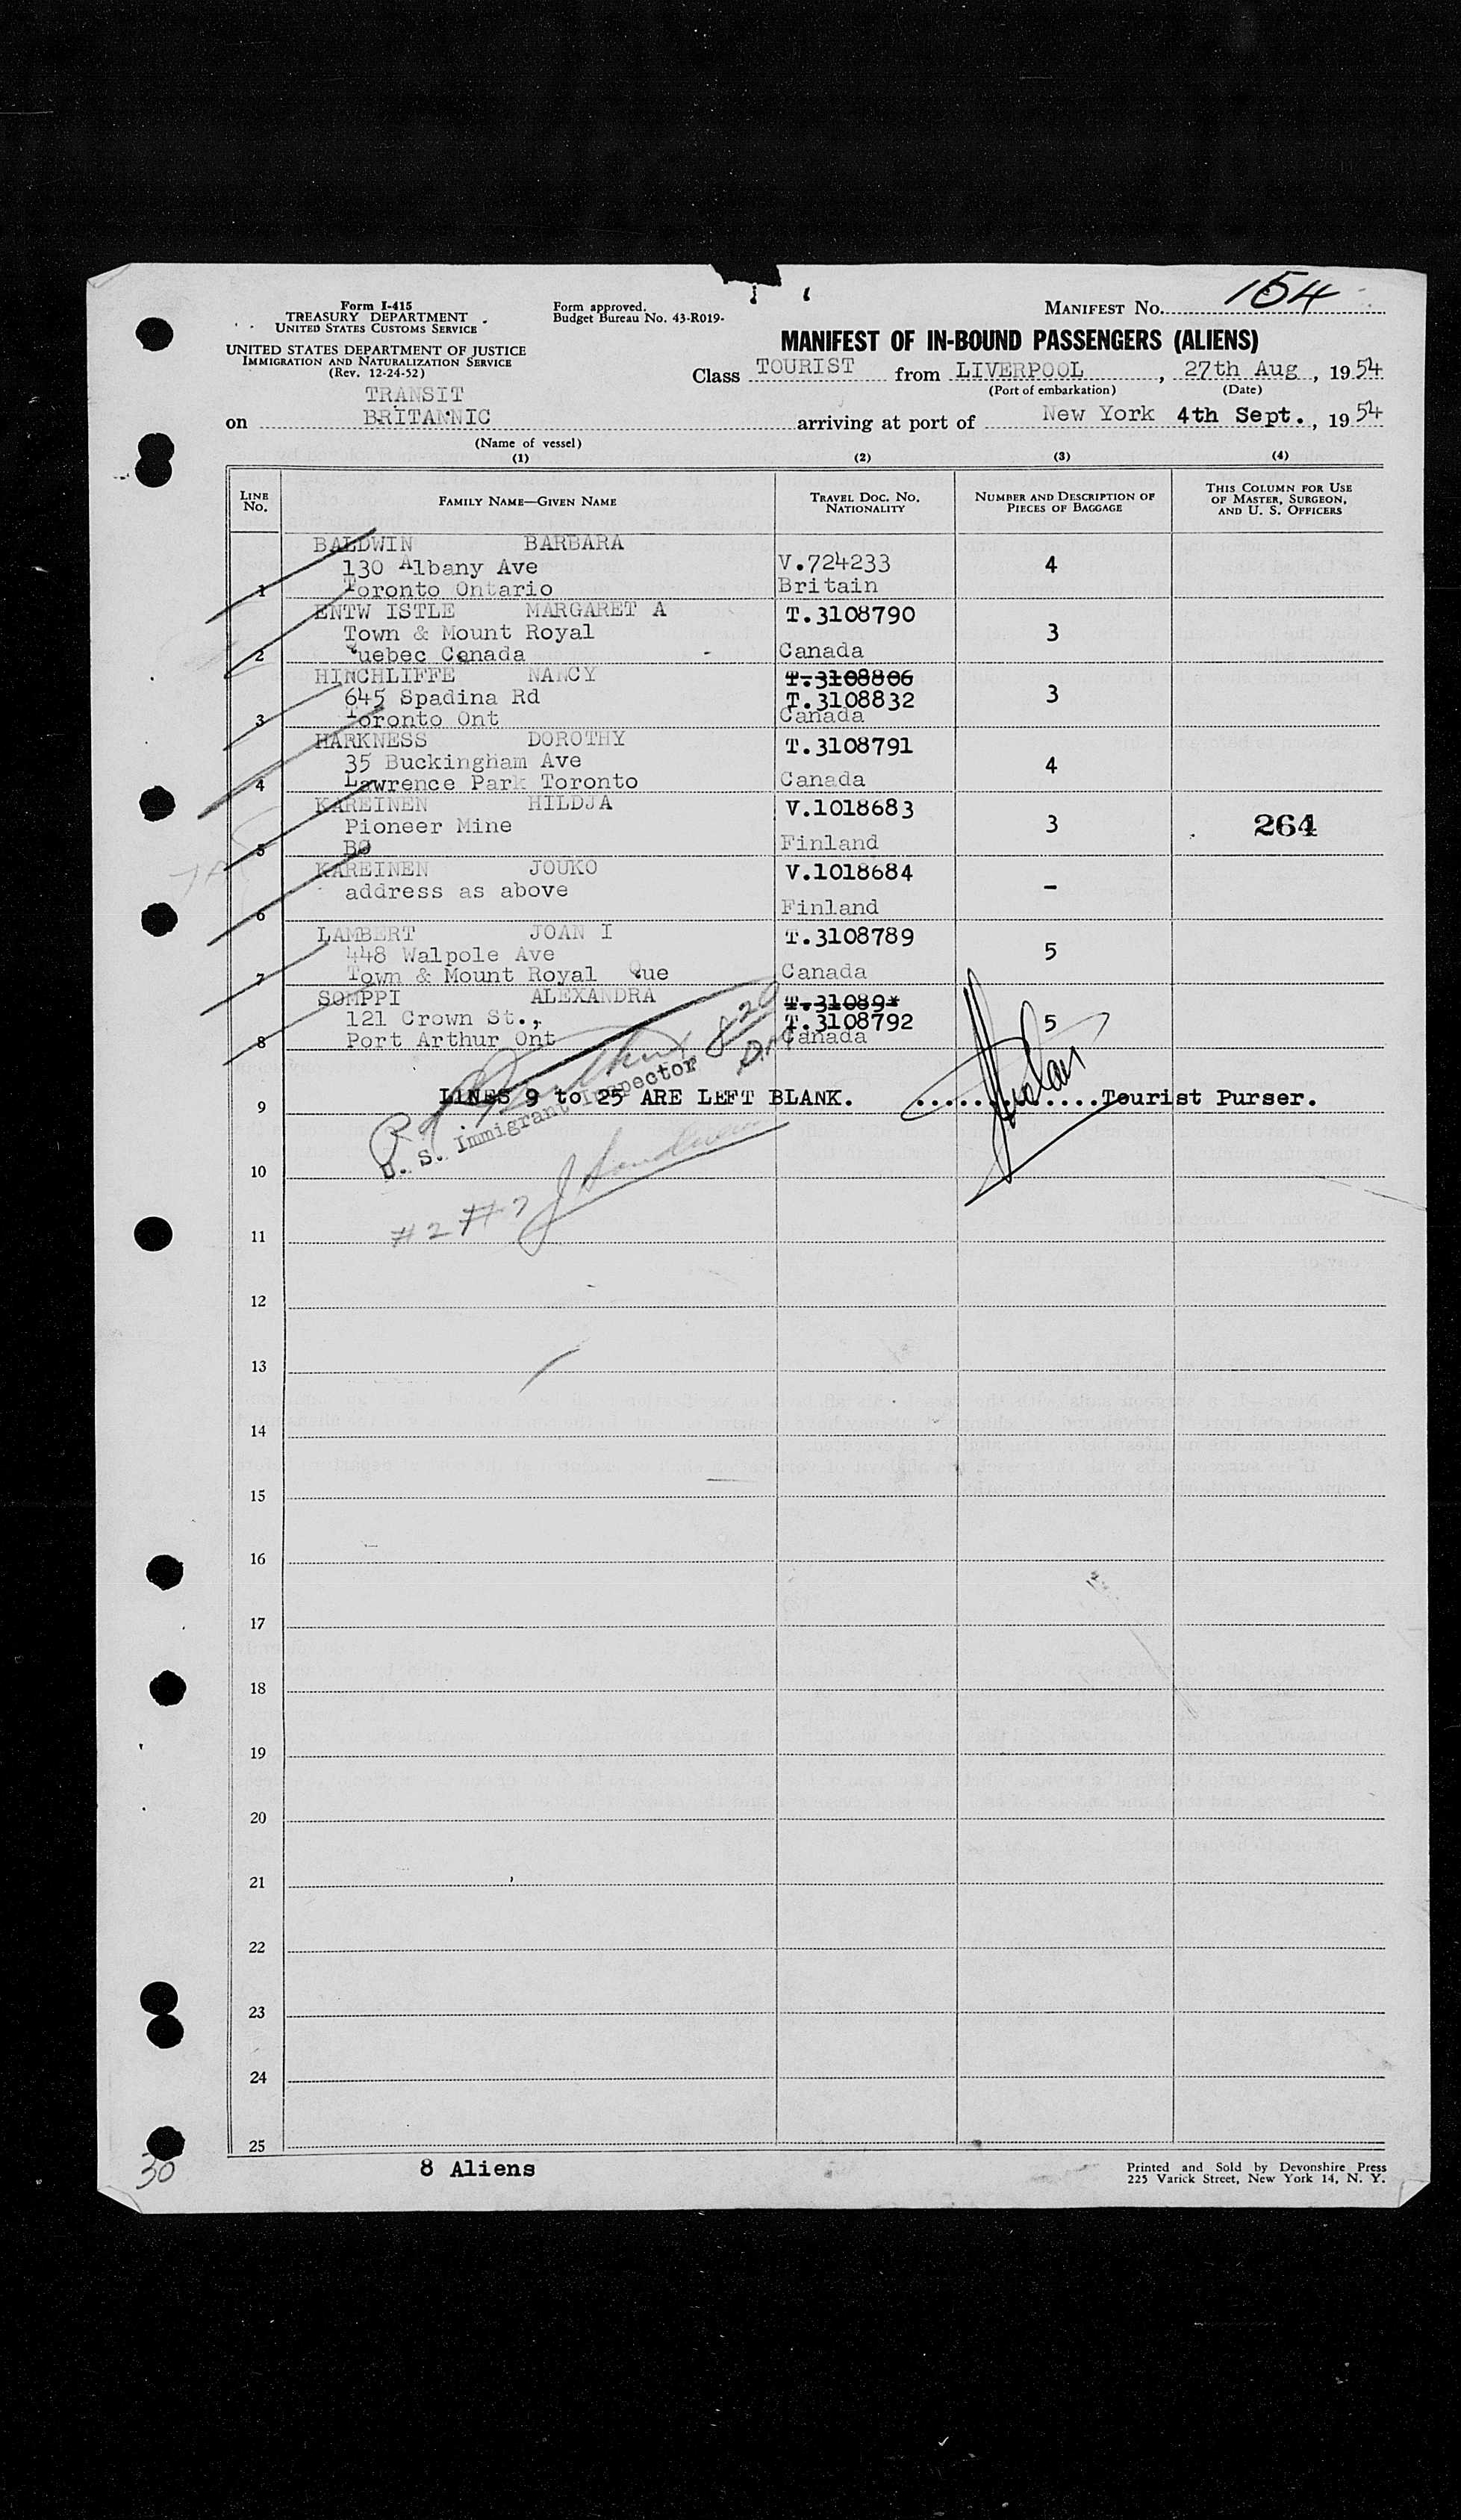 Form I-415
TREASURY DEPARTMENT
UNITED STATES CUSTOMS SERVICE
UNITED STATES DEPARTMENT OF JUSTICE
IMMIGRATION AND NATURALIZATION SERVICE
(Rev. 12-24-52)
Form approved.
Budget Bureau No. 43-R019-
MANIFEST No. 154
MANIFEST OF IN-BOUND PASSENGERS (ALIENS)
Class TOURIST from LIVERPOOL, 27th Aug, 1954
(Port of embarkation) (Date)
TRANSIT
on BRITANNIC arriving at port of New York 4th Sept., 1954
(Name of vessel)
(1) (2) (3) (4)
LINE No. FAMILY NAME—GIVEN NAME TRAVEL DOC. No. NATIONALITY NUMBER AND DESCRIPTION OF PIECES OF BAGGAGE THIS COLUMN FOR USE OF MASTER, SURGEON, AND U. S. OFFICERS
BALDWIN BARBARA
130 Albany Ave V.724233 4
1 Toronto Ontario Britain
ENTW ISTLE MARGARET A T.3108790
Town & Mount Royal 3
2 Quebec Canada Canada
HINCHLIFFE NANCY T.3108806
645 Spadina Rd T.3108832 3
3 Toronto Ont Canada
HARKNESS DOROTHY T.3108791
35 Buckingham Ave 4
4 Lawrence Park Toronto Canada
KAREINEN HILDJA V.1018683
Pioneer Mine 3 264
5 BC Finland
KAREINEN JOUKO V.1018684
address as above -
6 Finland
LAMBERT JOAN I T.3108789
448 Walpole Ave 5
7 Town & Mount Royal Que Canada
SOMPPI ALEXANDRA T.31089*
121 Crown St., T.3108792 5
8 Port Arthur Ont Canada
9 LINES 9 to 25 ARE LEFT BLANK. ..............Tourist Purser.
U. S. Immigrant Inspector
10
11
12
13
14
15
16
17
18
19
20
21
22
23
24
25
30
8 Aliens
Printed and Sold by Devonshire Press
225 Varick Street, New York 14, N. Y.